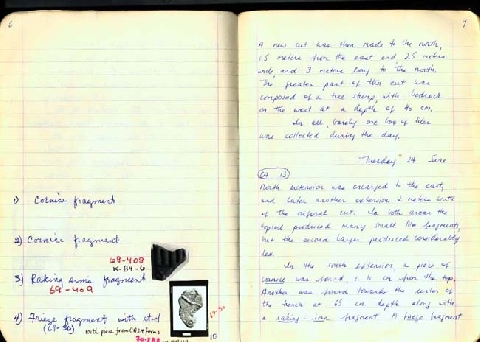 6
1) Cornice fragment
2) Cornice fragment
69-409
3) Raking sima fragment
69-409
4) Frieze fragment with stud
7
A new cut was then made to the north,
1.5 metre from the east end, 2.5 metre
wide, and 3 metre long to the north.
The greater part of this cut was
composed of a tree stump, with bedrock
on the west at a depth of 40 cm.
In all, barely one bag of tiles
was collected during the day.
"Tuesday" 24 June
North extension was enlarged to the east,
and later another extension 2 metre
of the original cut. In both areas the
topsoil produced many small tile fragments,
but the second layer produced considerably
less.
In the south extension a piece of
was found cm from the top.
Another was found towards the center of
the trench at 65 cm depth along with
a raking sima fragment. A frieze fragment